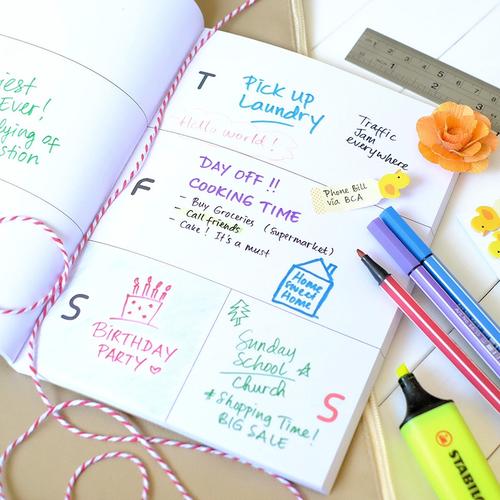 Ever!
T
Pick up
Laundry
Hello world!
Traffic
Jam
everywhere
F
DAY OFF !!
COOKING TIME
- Buy Groceries (Supermarket)
- Call friends
- Cake! It's a must
Phone Bill
via BCA
Home
sweet
Home
S
BIRTHDAY
PARTY
Sunday
School
Church
* Shopping Time!
BIG SALE
S
1
2
3
STABIL